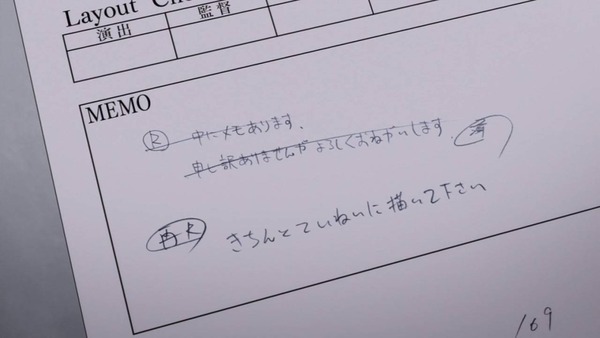 Layout Che
演出 監督
MEMO
Ⓡ 中にメモあります.
申し訳ありませんがよろしくおねがいします
再R きちんとていねいに描いて下さい
109